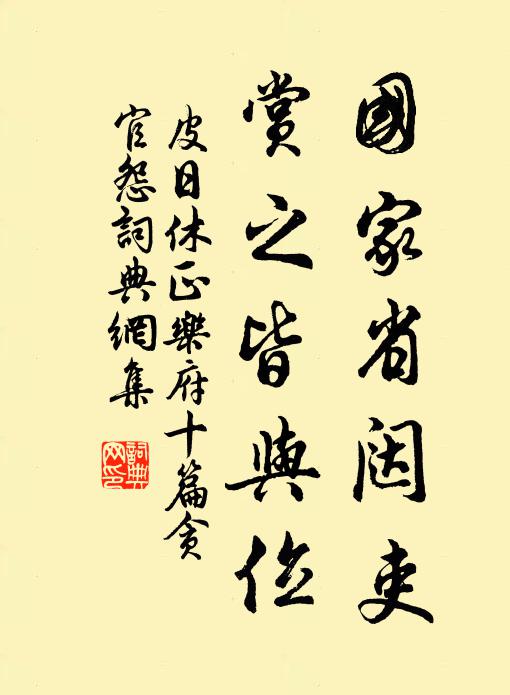 國家省闥吏
賞之皆與位
皮日休正樂府十篇貪
官怨詞典網集
詞典网印